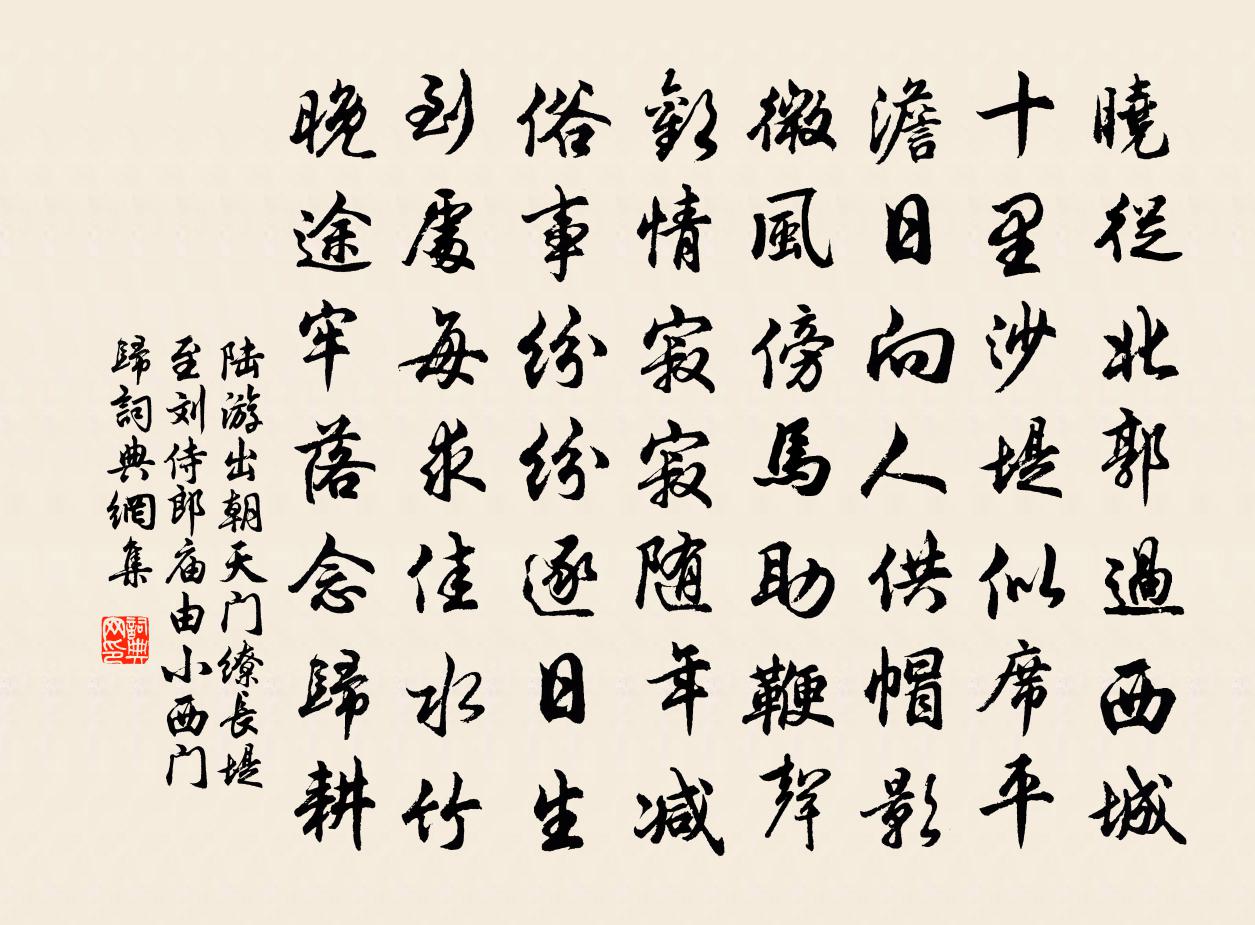 曉從北郭過西城
十里沙堤似席平
澹日向人供帽影
微風傍馬助鞭聲
歡情寂寂随年减
俗事紛紛逐日生
到處每求佳水竹
晚途牢落念歸耕
陆游出朝天门繚長堤
至刘侍郎庙由小西门
歸詞典網集
詞典
网印